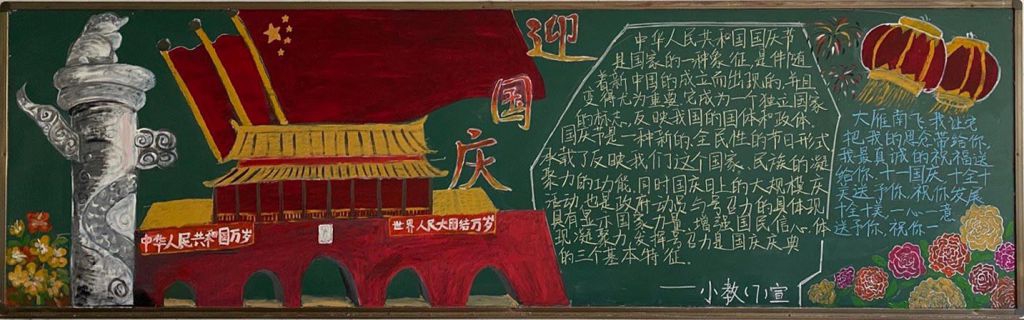 迎
国
庆
中华人民共和国万岁
世界人民大团结万岁
中华人民共和国国庆节
是国家的一种象征，是伴随
着新中国的成立而出现的，并且
变得尤为重要。它成为一个独立国家
的标志，反映我国的国体和政体。
国庆节是一种新的、全民性的节日形式，
承载了反映我们这个国家、民族的凝
聚力的功能。同时国庆日上的大规模庆
活动，也是政府动员与号召力的具体现
具有显示国家力量、增强国民信心，体
现凝聚力，发挥号召力是国庆庆典
的三个基本特征。
——小教（7）宣
大雁南飞，我让它
把我的思念带给你，
我最真诚的祝福送
给你，十一国庆，十全十
美送予你，祝你发展
十全十美，一心一意
送予你，祝你一